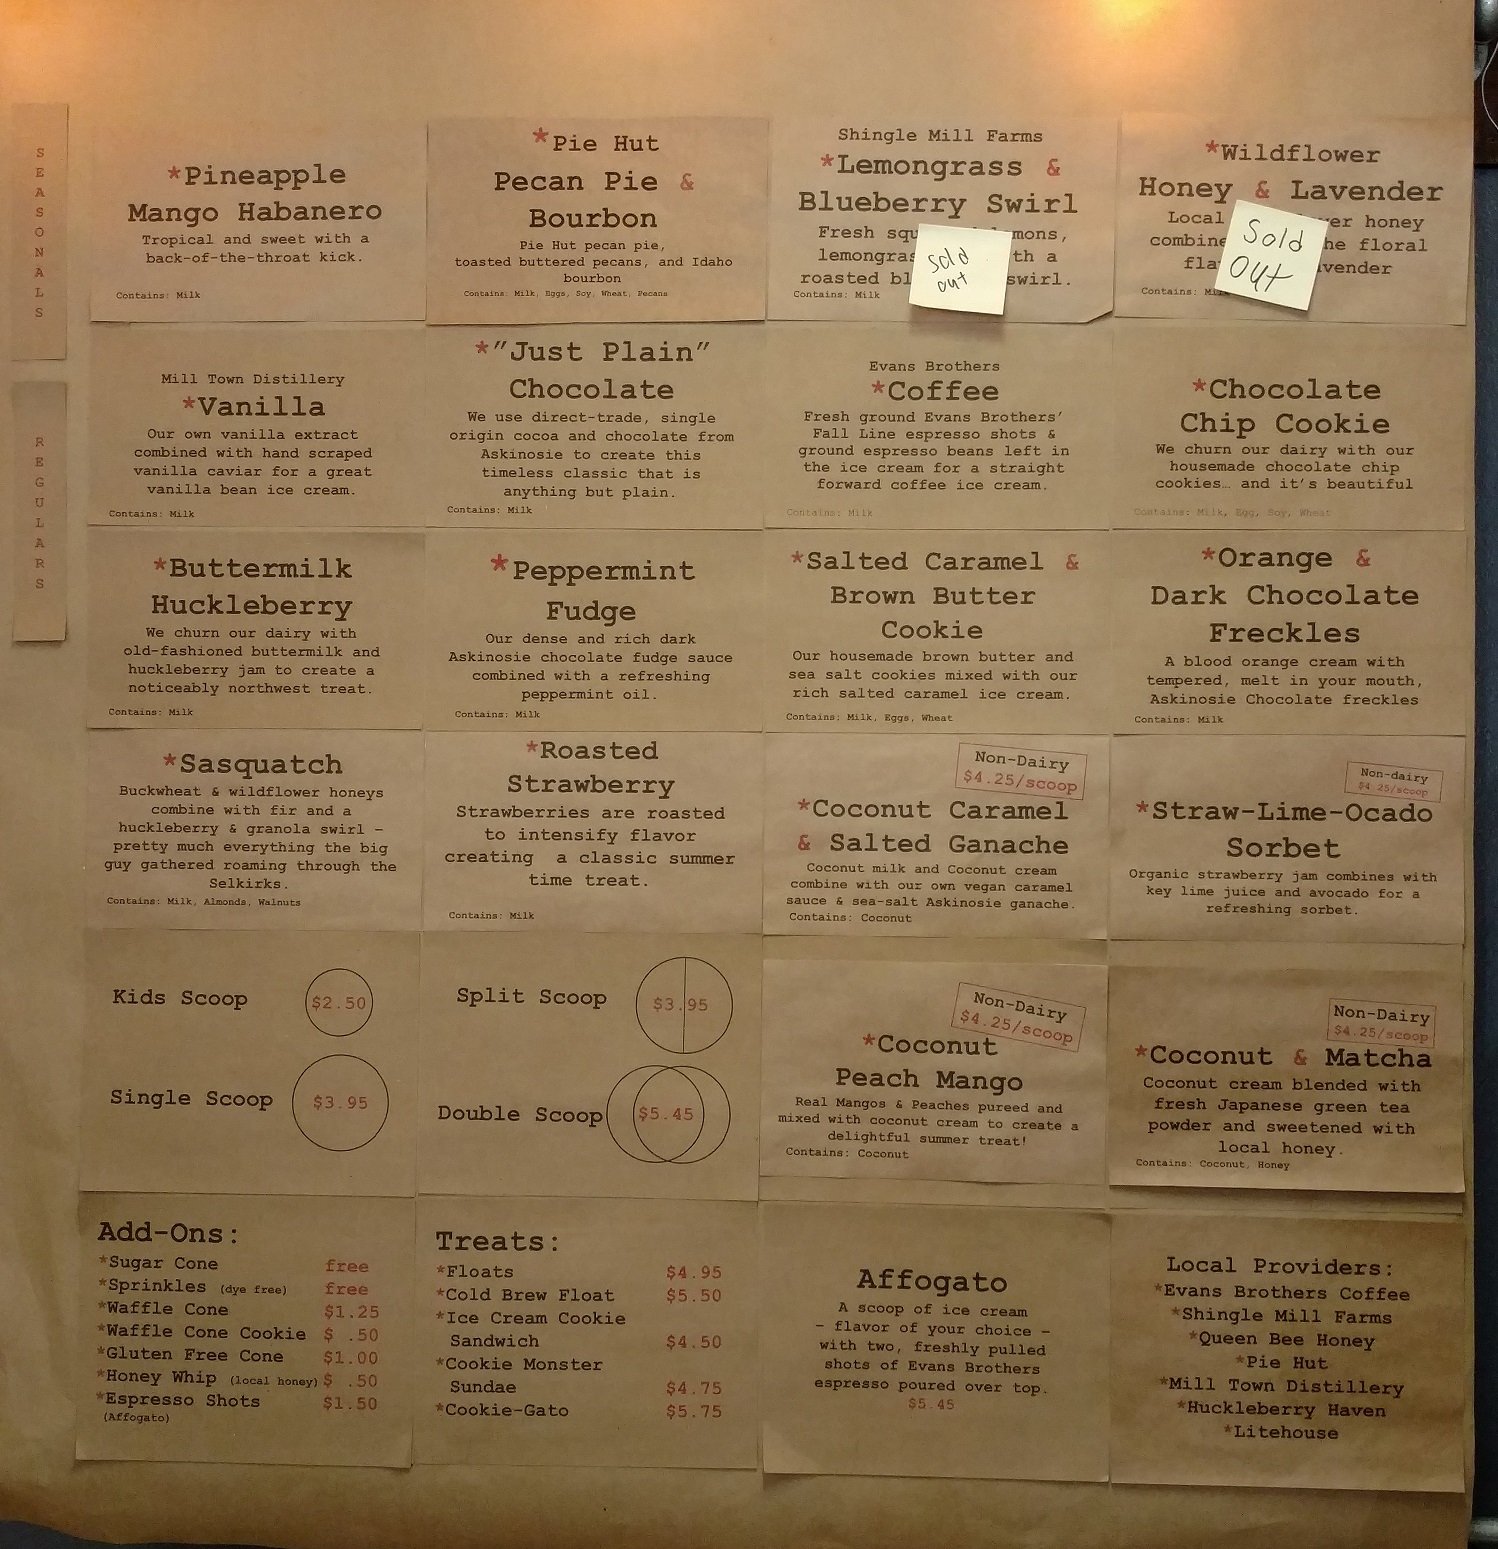 SEASONALS
*Pineapple
Mango Habanero
Tropical and sweet with a
back-of-the-throat kick.
Contains: Milk
*Pie Hut
Pecan Pie &
Bourbon
Pie Hut pecan pie,
toasted buttered pecans, and Idaho
bourbon
Contains: Milk, Eggs, Soy, Wheat, Pecans
Shingle Mill Farms
*Lemongrass &
Blueberry Swirl
Fresh squ mons,
lemongras th a
roasted bl swirl.
Contains: Milk
Sold
out
*Wildflower
Honey & Lavender
Local er honey
combine he floral
fla vender
Contains: Mi
Sold
OUT
REGULARS
Mill Town Distillery
*Vanilla
Our own vanilla extract
combined with hand scraped
vanilla caviar for a great
vanilla bean ice cream.
Contains: Milk
*"Just Plain"
Chocolate
We use direct-trade, single
origin cocoa and chocolate from
Askinosie to create this
timeless classic that is
anything but plain.
Contains: Milk
Evans Brothers
*Coffee
Fresh ground Evans Brothers'
Fall Line espresso shots &
ground espresso beans left in
the ice cream for a straight
forward coffee ice cream.
Contains: Milk
*Chocolate
Chip Cookie
We churn our dairy with our
housemade chocolate chip
cookies… and it's beautiful
Contains: Milk, Egg, Soy, Wheat
*Buttermilk
Huckleberry
We churn our dairy with
old-fashioned buttermilk and
huckleberry jam to create a
noticeably northwest treat.
Contains: Milk
*Peppermint
Fudge
Our dense and rich dark
Askinosie chocolate fudge sauce
combined with a refreshing
peppermint oil.
Contains: Milk
*Salted Caramel &
Brown Butter
Cookie
Our housemade brown butter and
sea salt cookies mixed with our
rich salted caramel ice cream.
Contains: Milk, Eggs, Wheat
*Orange &
Dark Chocolate
Freckles
A blood orange cream with
tempered, melt in your mouth,
Askinosie Chocolate freckles
Contains: Milk
*Sasquatch
Buckwheat & wildflower honeys
combine with fir and a
huckleberry & granola swirl –
pretty much everything the big
guy gathered roaming through the
Selkirks.
Contains: Milk, Almonds, Walnuts
*Roasted
Strawberry
Strawberries are roasted
to intensify flavor
creating a classic summer
time treat.
Contains: Milk
Non-Dairy
$4.25/scoop
*Coconut Caramel
& Salted Ganache
Coconut milk and Coconut cream
combine with our own vegan caramel
sauce & sea-salt Askinosie ganache.
Contains: Coconut
Non-dairy
$4.25/scoop
*Straw-Lime-Ocado
Sorbet
Organic strawberry jam combines with
key lime juice and avocado for a
refreshing sorbet.
Kids Scoop $2.50
Single Scoop $3.95
Split Scoop $3.95
Double Scoop $5.45
Non-Dairy
$4.25/scoop
*Coconut
Peach Mango
Real Mangos & Peaches pureed and
mixed with coconut cream to create a
delightful summer treat!
Contains: Coconut
Non-Dairy
$4.25/scoop
*Coconut & Matcha
Coconut cream blended with
fresh Japanese green tea
powder and sweetened with
local honey.
Contains: Coconut, Honey
Add-Ons:
*Sugar Cone free
*Sprinkles (dye free) free
*Waffle Cone $1.25
*Waffle Cone Cookie $ .50
*Gluten Free Cone $1.00
*Honey Whip (local honey) $ .50
*Espresso Shots $1.50
(Affogato)
Treats:
*Floats $4.95
*Cold Brew Float $5.50
*Ice Cream Cookie
Sandwich $4.50
*Cookie Monster
Sundae $4.75
*Cookie-Gato $5.75
Affogato
A scoop of ice cream
– flavor of your choice –
with two, freshly pulled
shots of Evans Brothers
espresso poured over top.
$5.45
Local Providers:
*Evans Brothers Coffee
*Shingle Mill Farms
*Queen Bee Honey
*Pie Hut
*Mill Town Distillery
*Huckleberry Haven
*Litehouse